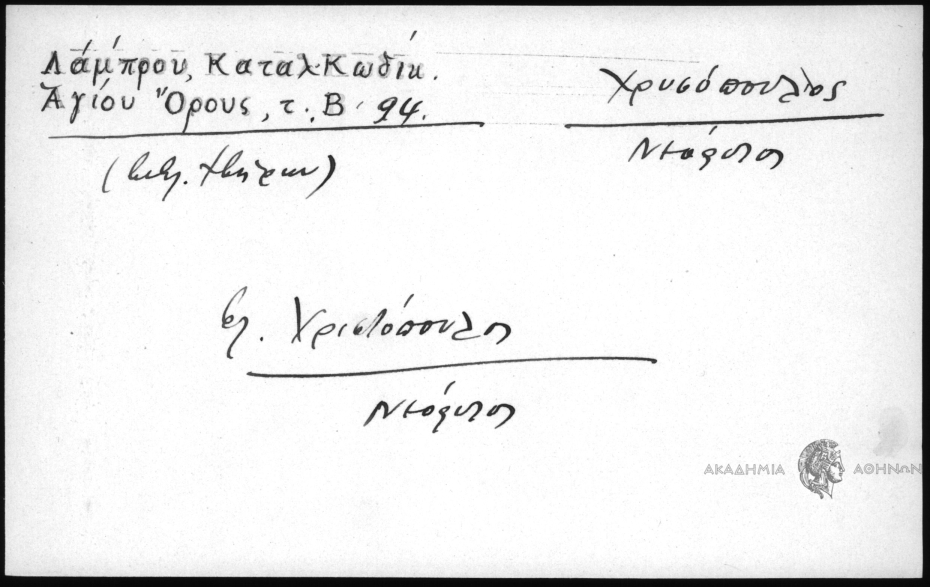 Λάμπρου, Καταλ. Κωδίκ.
Ἁγίου Ὄρους, τ. Β΄ 94.
Χρυσόπουλος
Νεόφυτος
Χριστόπουλος
Νεόφυτος
ΑΚΑΔΗΜΙΑ ΑΘΗΝΩΝ